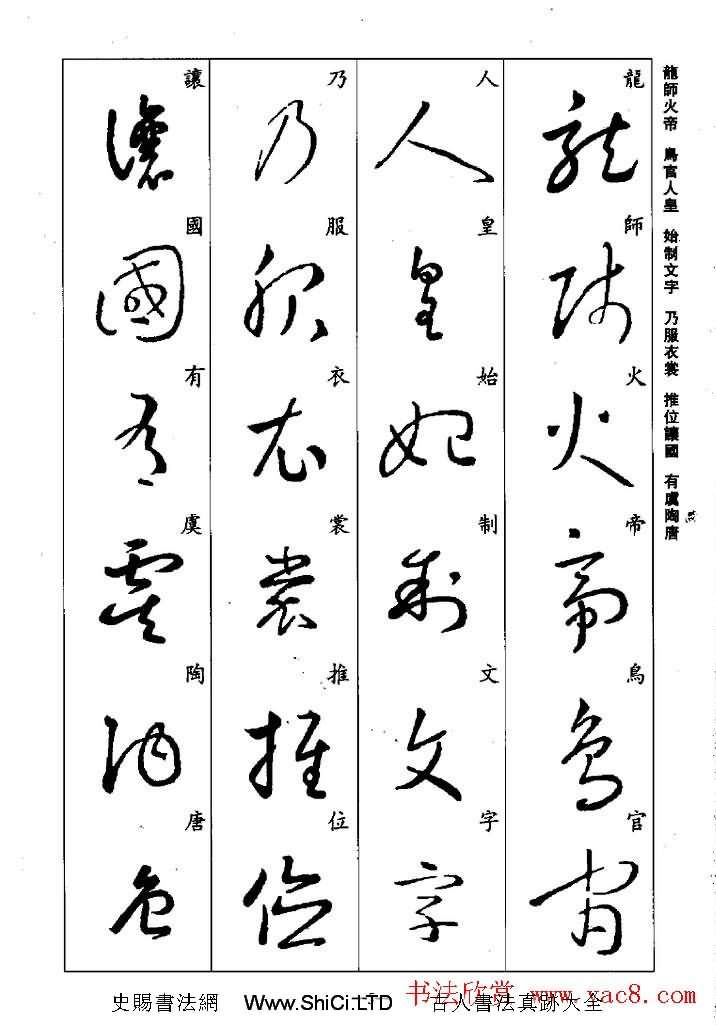 龍師火帝 鳥官人皇 始制文字 乃服衣裳 推位讓國 有虞陶唐
龍師火帝鳥官
人皇始制文字
乃服衣裳推位
讓國有虞陶唐
史賜書法網 Www.ShiCi.LTD 古人書法真跡大全
书法欣赏 www.yac8.com